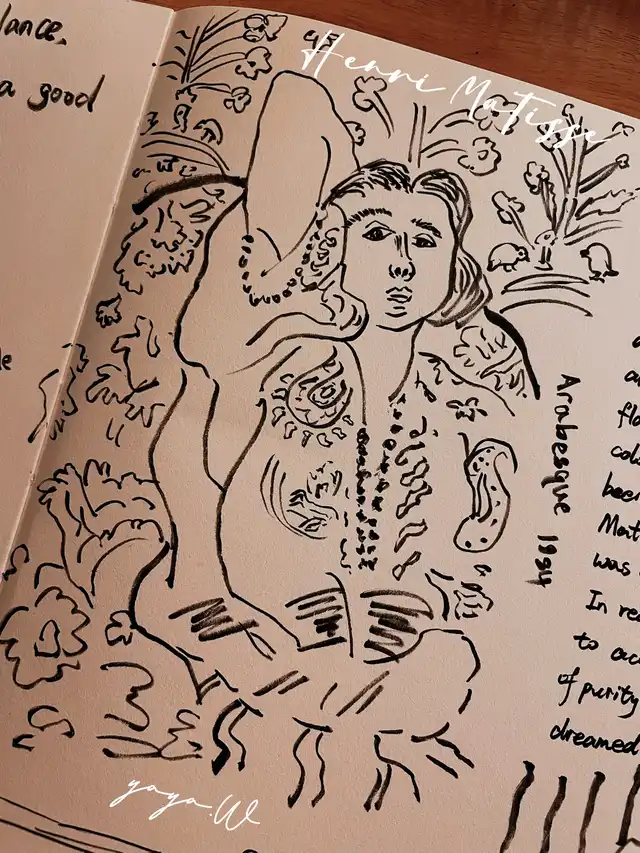 lance.
a good
Henri Matisse
Arabesque 1994
flo
Mat
was
In re
to ac
of purity
dreamed
yaya.W